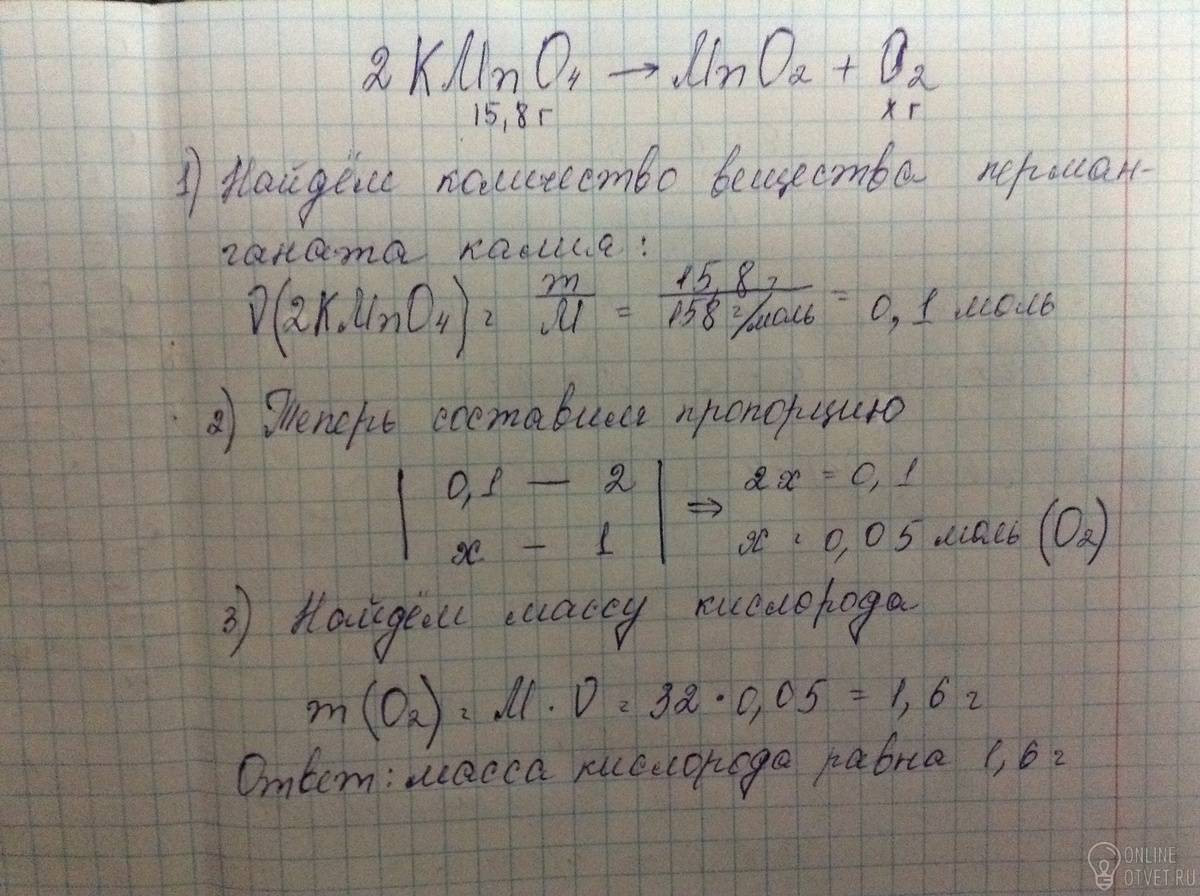 2KMnO₄ → MnO₂ + O₂
15,8 г х г
1) Найдём количество вещества перман-
ганата калия:
ν(2KMnO₄) = m/M = 15,8 г/158 г/моль = 0,1 моль
2) Теперь составим пропорцию
| 0,1 — 2 | ⇒ 2x = 0,1
| x — 1 | x = 0,05 моль (O₂)
3) Найдём массу кислорода
m(O₂) = M · ν = 32 · 0,05 = 1,6 г
Ответ: масса кислорода равна 1,6 г
ONLINE
OTVET.RU